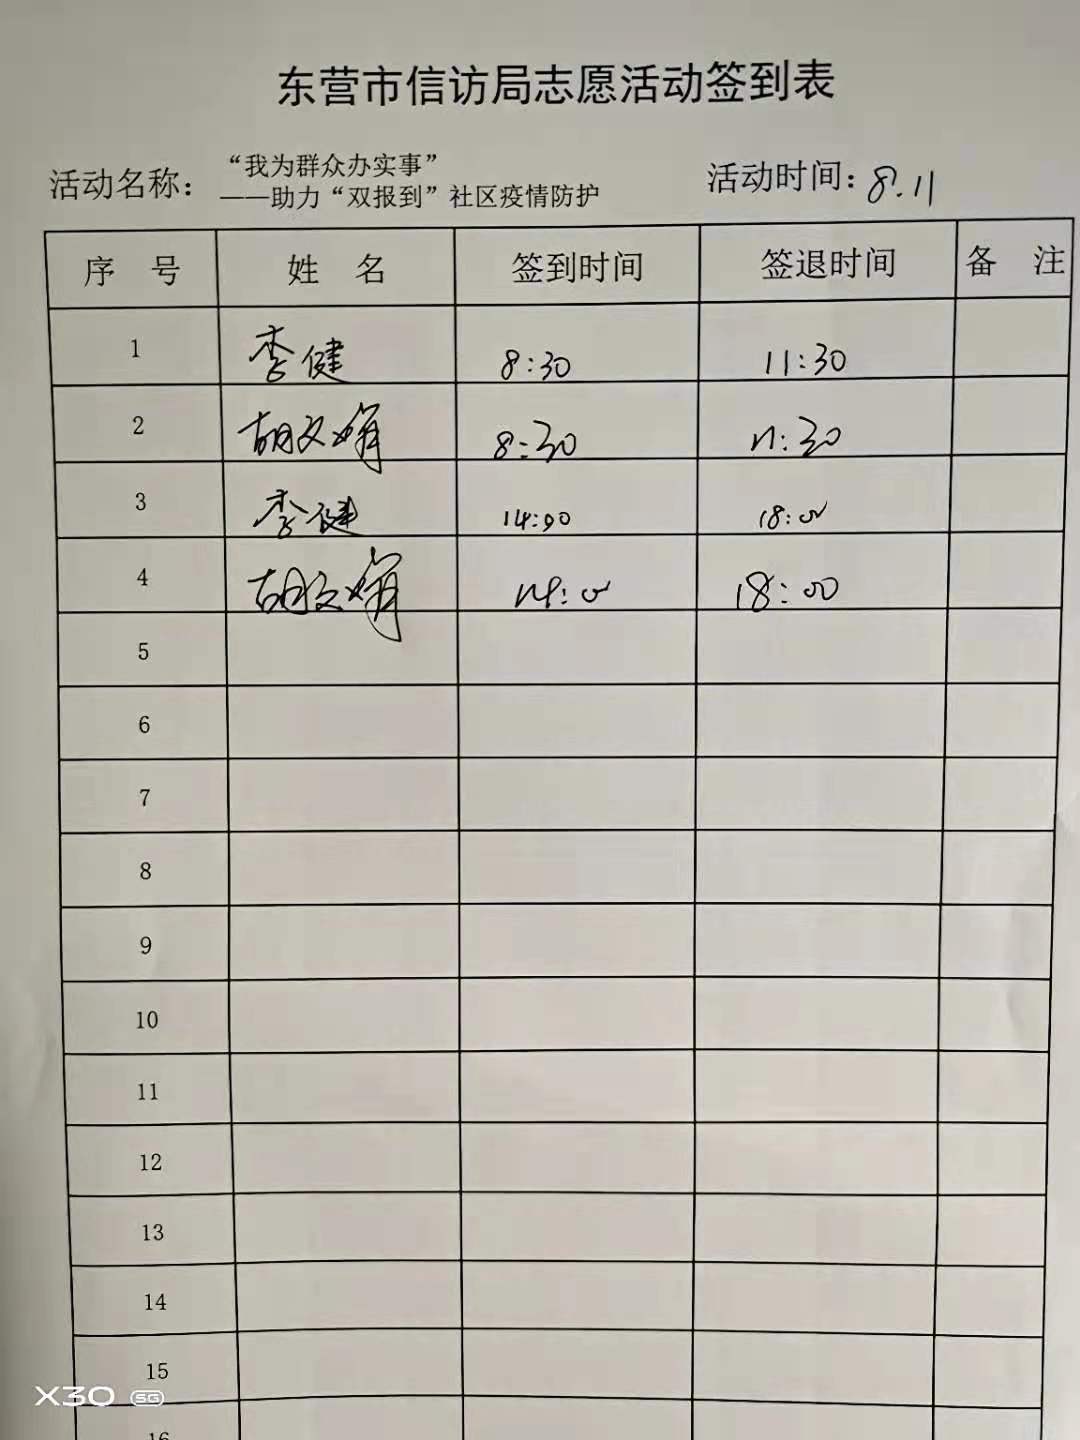 东营市信访局志愿活动签到表
活动名称：“我为群众办实事”
——助力“双报到”社区疫情防护
活动时间：8.11
序 号 姓 名 签到时间 签退时间 备 注
1 李健 8:30 11:30
2 胡文娟 8:30 11:30
3 李健 14:00 18:00
4 胡文娟 14:00 18:00
5
6
7
8
9
10
11
12
13
14
15
16
X30 5G